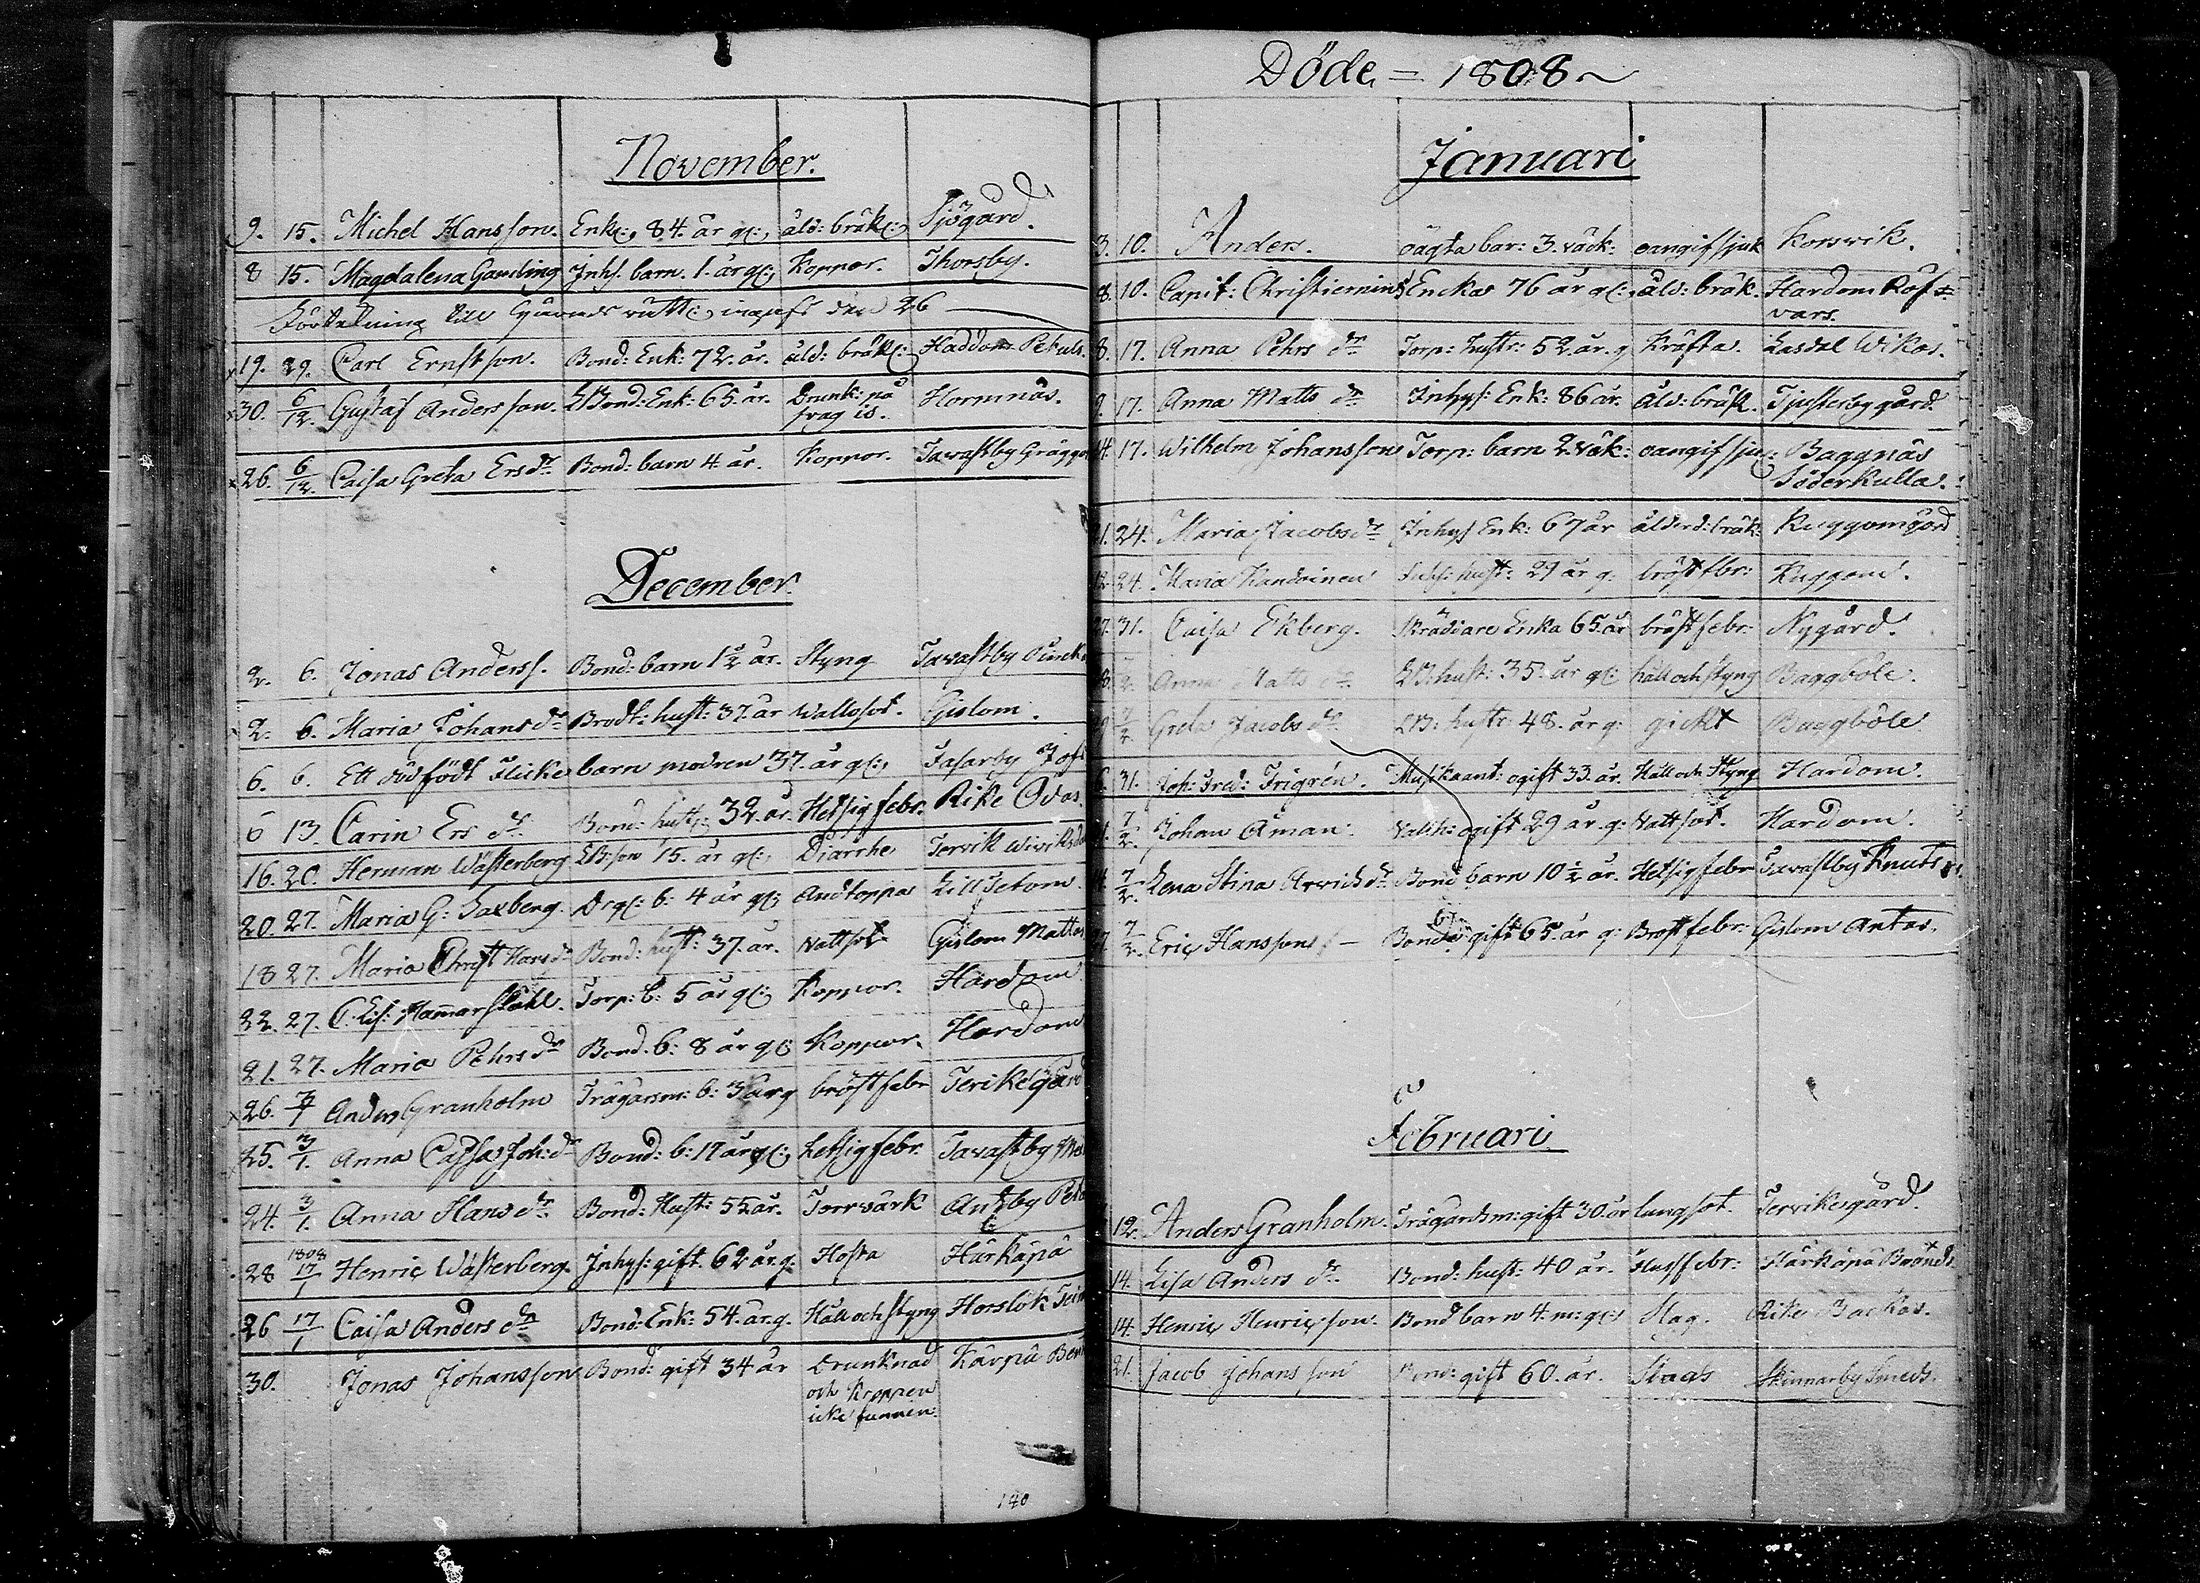 November.
9. 15. Michel Hansson. Enkl: 84. år gl: åld: bräkl: Sjögård.
8 15. Magdalena Gamling Inhs. barn. 1. år gl: Koppor. Thorsby.
Förtekning till Härads rätt: den 26
19. 29. Carl Ernstson. Bond: Enk: 72. år. åld: bräkl: Haddom Pekuls.
30. 6/12. Gustaf Andersson. Bond: Enk: 65. år. Drunk: på Hornnäs.
svag is.
26. 6/12. Caisa Greta Ers dr Bond: barn 4. år. Koppor. Tavastby Gräggas
December.
2. 6. Jonas Anderss. Bond: barn 1 1/2 år. Styng Tavastby
2. 6. Maria Johans dr Brodt: hust: 37. år Wallosot. Gislom.
6. 6. Ett dödfödt Flicke barn modren 37. år gl: Sasarby
6 13. Carin Ers dr. Bond: hust: 32. år. Hetsig febr. Rike Odas.
16. 20. Herman Wästerberg LB: son 15. år gl: Diarrhe Tervik
20. 27. Maria G: Saxberg. b: 4 år gl: Andtoppa Lill Petom.
18 27. Maria Christ Hans dr Bond: hust: 37. år. Vattsot Gislom Mattas
22. 27. C. Lis: Hammarståhl. Torp: b: 5 år gl: Koppor. Hardom
21. 27. Maria Pehrs dr Bond: b: 8 år gl: Koppor. Hardom
26. 3/1 Anders Granholm Trägårsm: b: 3 år g bröstfebr Tervikegård
25. 3/1. Anna Cajsa Joh: dr Bond: b: 17 år gl: hetsig febr. Tavastby
24. 3/1. Anna Hans dr Bond: Hust: 55 år. Torrvärk Andby
28 1808 17/1 Henric Wästerberg. Inhys: gift. 62 år. g: Hosta Härkäpä
26 17/1 Caisa Anders dr Bond: Enk: 54. år. g. Håll och styng Horslök
30. Jonas Johansson Bond: gift 34 år Drunknad Kärpä
och Kroppen
icke funnen.
140
Döde = 1808 ~
Januari
3. 10. Anders. oägta bar: 3. väck: oangifsjuk Korsvik.
8. 10. Capit: Christiernins Enckas 76 år gl: åld: bräk. Hardom Räf=
vars.
8. 17. Anna Pehrs dr Torp: hustr: 52. år. g Kräfta. Lasdal Wikas.
9. 17. Anna Matts dr Inhys: Enk: 86 år. åld: bräk. Tjusterby gård
14. 17. Wilhelm Johansson Torp: barn 2. väk: oangifsju: Baggnäs
Söderkulla.
21. 24. Maria Jacobs dr Inhys Enk: 67 år ålderd: bräk: Kuggomgård
12. 24. Maria Inhs: hust: 29 år g: bröstfbr: Kuggom.
27. 31. Caisa Ekberg. Skräddare Enka 65. år bröstfebr: Nygård.
28. 7/2 Anna Matts dr. LB: hust: 35. år gl: håll och styng Baggböle.
29 7/2. Greta Jacobs dr LB: hustr: 48. år g: gickt Baggböle
6. 31. Joh: Fred: Frigrén. Musikaant: ogift 33. år. Håll och Styng Hardom.
21. 7/2. Johan Åman. ogift 29 år. g: Vattsot. Hardom.
24. 7/2. Lena Stina Arvids dr Bond barn 10 1/2 år. Hetsig febr Tavastby Knuts
27. 7/2. Eric Hanssons – Bonde gift 65. år g: Bröstfebr: Gislom Antas.
Februari.
12. Anders Granholm. Trägårdsm: gift 30. år lungsot. Tervikegård.
14. Lisa Anders dr. Bond: hust: 40 år. Hussfebr: Härkäpä Bränds
14. Henric Henricson. Bond barn 4. m: gl: Slag. Rike Backas.
21. Jacob Johansson Bond: gift 60. år. Slags Skinnarby Smeds.